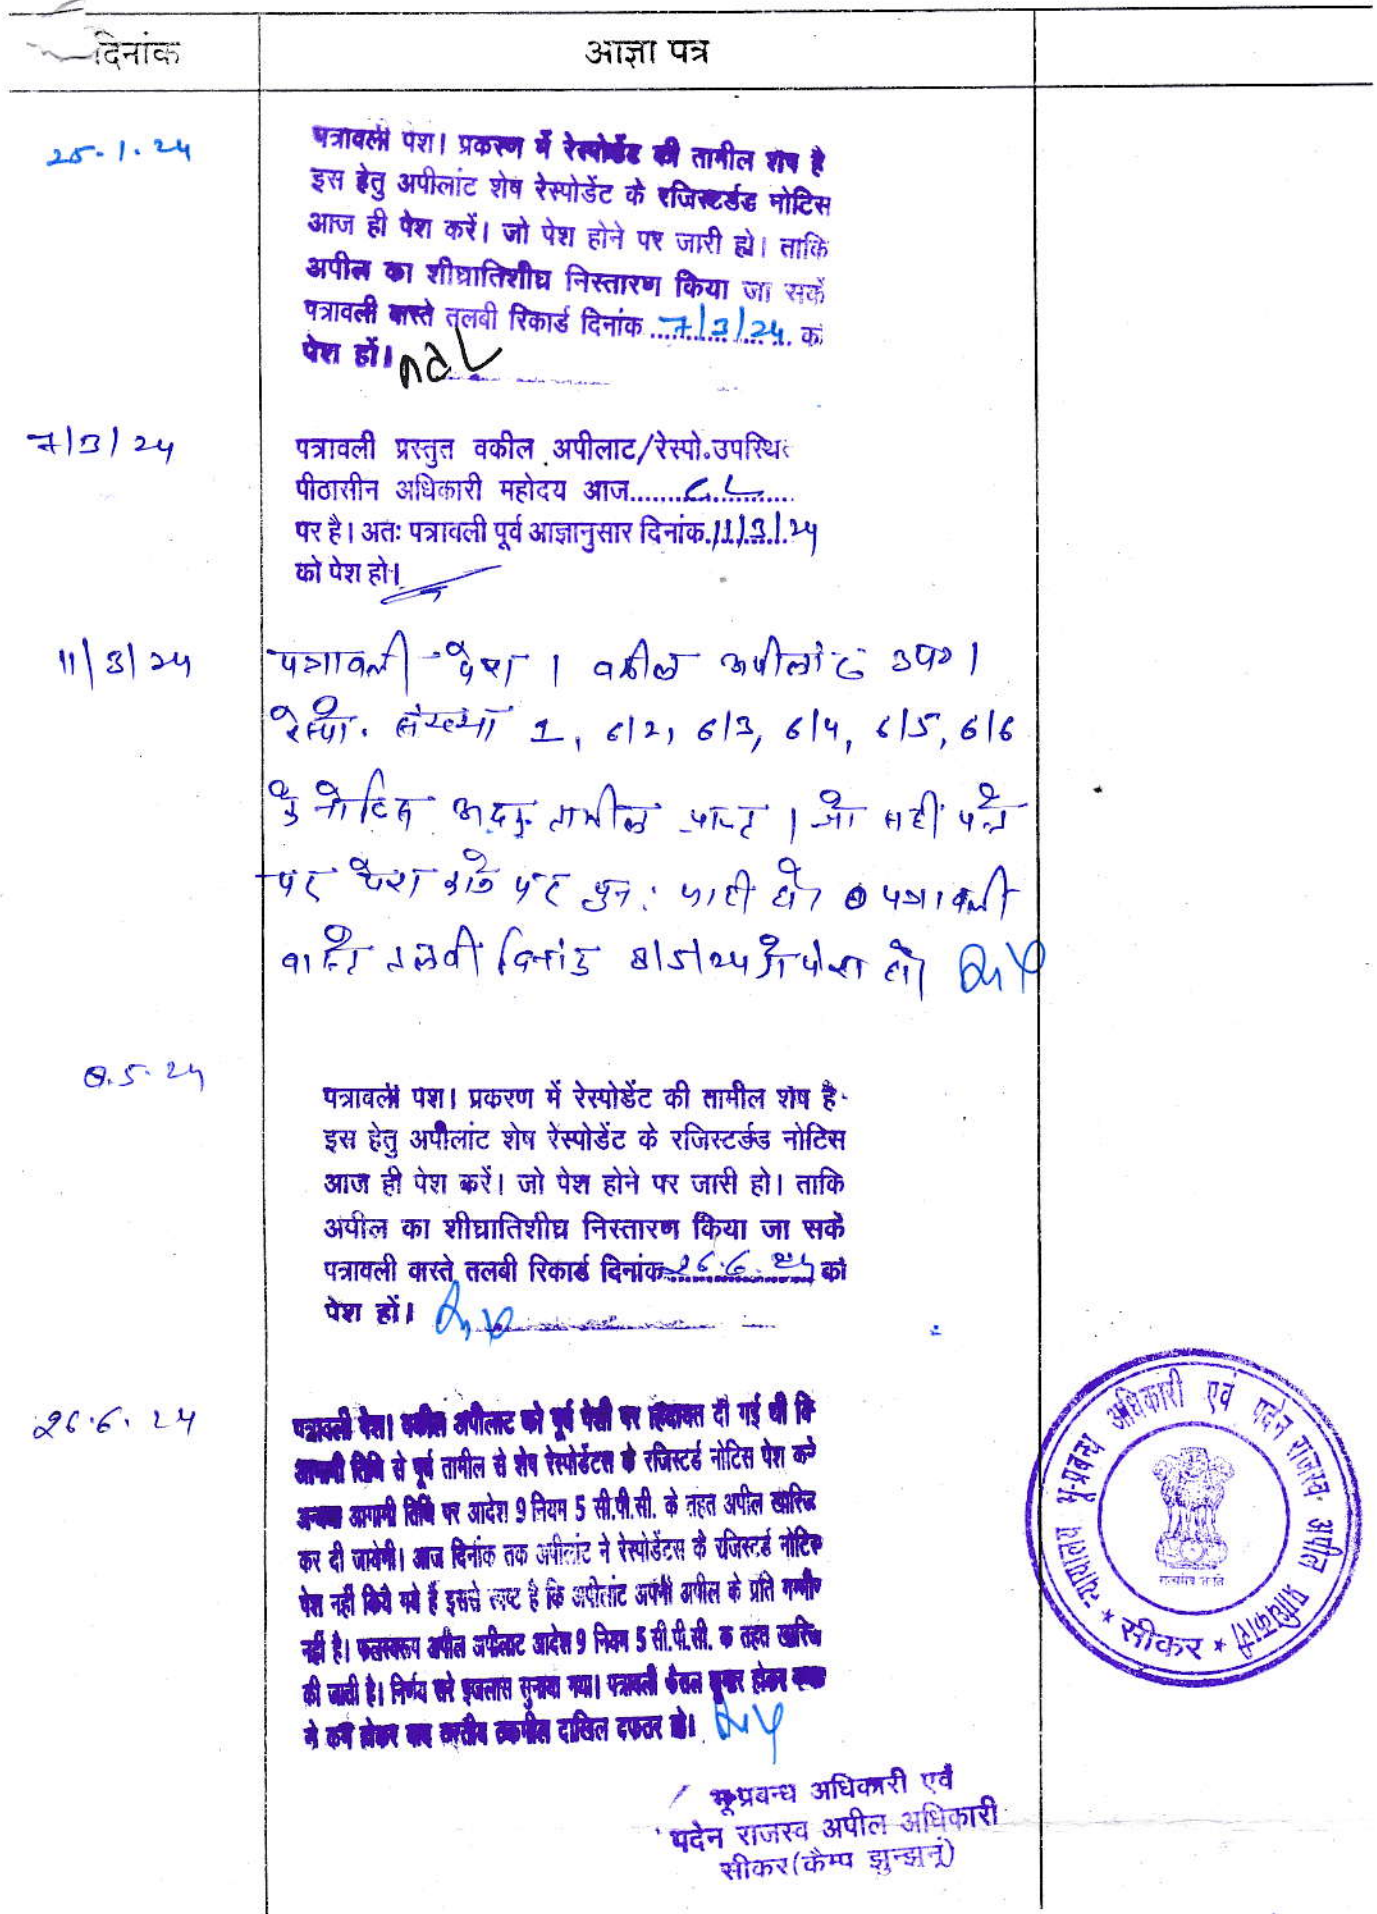 दिनांक
आज्ञा पत्र
25.1.24
पत्रावली पेश। प्रकरण में रेस्पोडेंट की तामील शेष है
इस हेतु अपीलांट शेष रेस्पोडेंट के रजिस्टर्डड नोटिस
आज ही पेश करें। जो पेश होने पर जारी हो। ताकि
अपील का शीघ्रातिशीघ्र निस्तारण किया जा सकें
पत्रावली वास्ते तलबी रिकार्ड दिनांक 7/3/24 को
पेश हों।
7/3/24
पत्रावली प्रस्तुत वकील अपीलाट/रेस्पो.उपस्थित
पीठासीन अधिकारी महोदय आज CL
पर है। अतः पत्रावली पूर्व आज्ञानुसार दिनांक 11/3/24
को पेश हो।
11/3/24
पत्रावली पेश। वकील अपीलांट उप०।
रेस्पो. संख्या 1, 6/2, 6/3, 6/4, 6/5, 6/6
के नोटिस अदम तामील प्राप्त। जो सही पते
पर पेश होने पर पुनः जारी हो। पत्रावली
वास्ते तलबी दिनांक 8/5/24 को पेश हो।
8.5.24
पत्रावली पेश। प्रकरण में रेस्पोडेंट की तामील शेष है
इस हेतु अपीलांट शेष रेस्पोडेंट के रजिस्टर्डड नोटिस
आज ही पेश करें। जो पेश होने पर जारी हो। ताकि
अपील का शीघ्रातिशीघ्र निस्तारण किया जा सकें
पत्रावली वास्ते तलबी रिकार्ड दिनांक 26.6.24 को
पेश हों।
26.6.24
पत्रावली पेश। वकील अपीलाट को पूर्व पेशी पर हिदायत दी गई थी कि
आगामी तिथि से पूर्व तामील से शेष रेस्पोडेंटस के रजिस्टर्ड नोटिस पेश करे
अन्यथा आगामी तिथि पर आदेश 9 नियम 5 सी.पी.सी. के तहत अपील खारिज
कर दी जावेगी। आज दिनांक तक अपीलांट ने रेस्पोडेंटस के रजिस्टर्ड नोटिस
पेश नहीं किये गये हैं इससे स्पष्ट है कि अपीलांट अपनी अपील के प्रति गम्भीर
नहीं है। फलस्वरूप अपील अपीलाट आदेश 9 नियम 5 सी.पी.सी. के तहत खारिज
की जाती है। निर्णय सरे इजलास सुनाया गया। पत्रावली फैसल शुमार होकर नम्बर
से कम होकर बाद तरतीब तकमील दाखिल दफतर हो।
न्यायालय भू-प्रबन्ध अधिकारी एवं पदेन राजस्व अपील प्राधिकारी
सत्यमेव जयते
* सीकर *
भू-प्रबन्ध अधिकारी एवं
पदेन राजस्व अपील अधिकारी
सीकर(कैम्प झुन्झनूं)